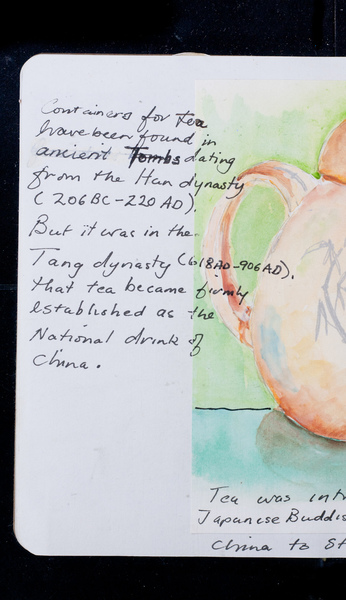 Containers for tea
have been found in
ancient Tombs dating
from the Han dynasty
(206BC-220AD).
But it was in the
Tang dynasty (618AD-906AD).
that tea became firmly
established as the
National drink of
China.
Tea was int
Japanese Buddis
China to St